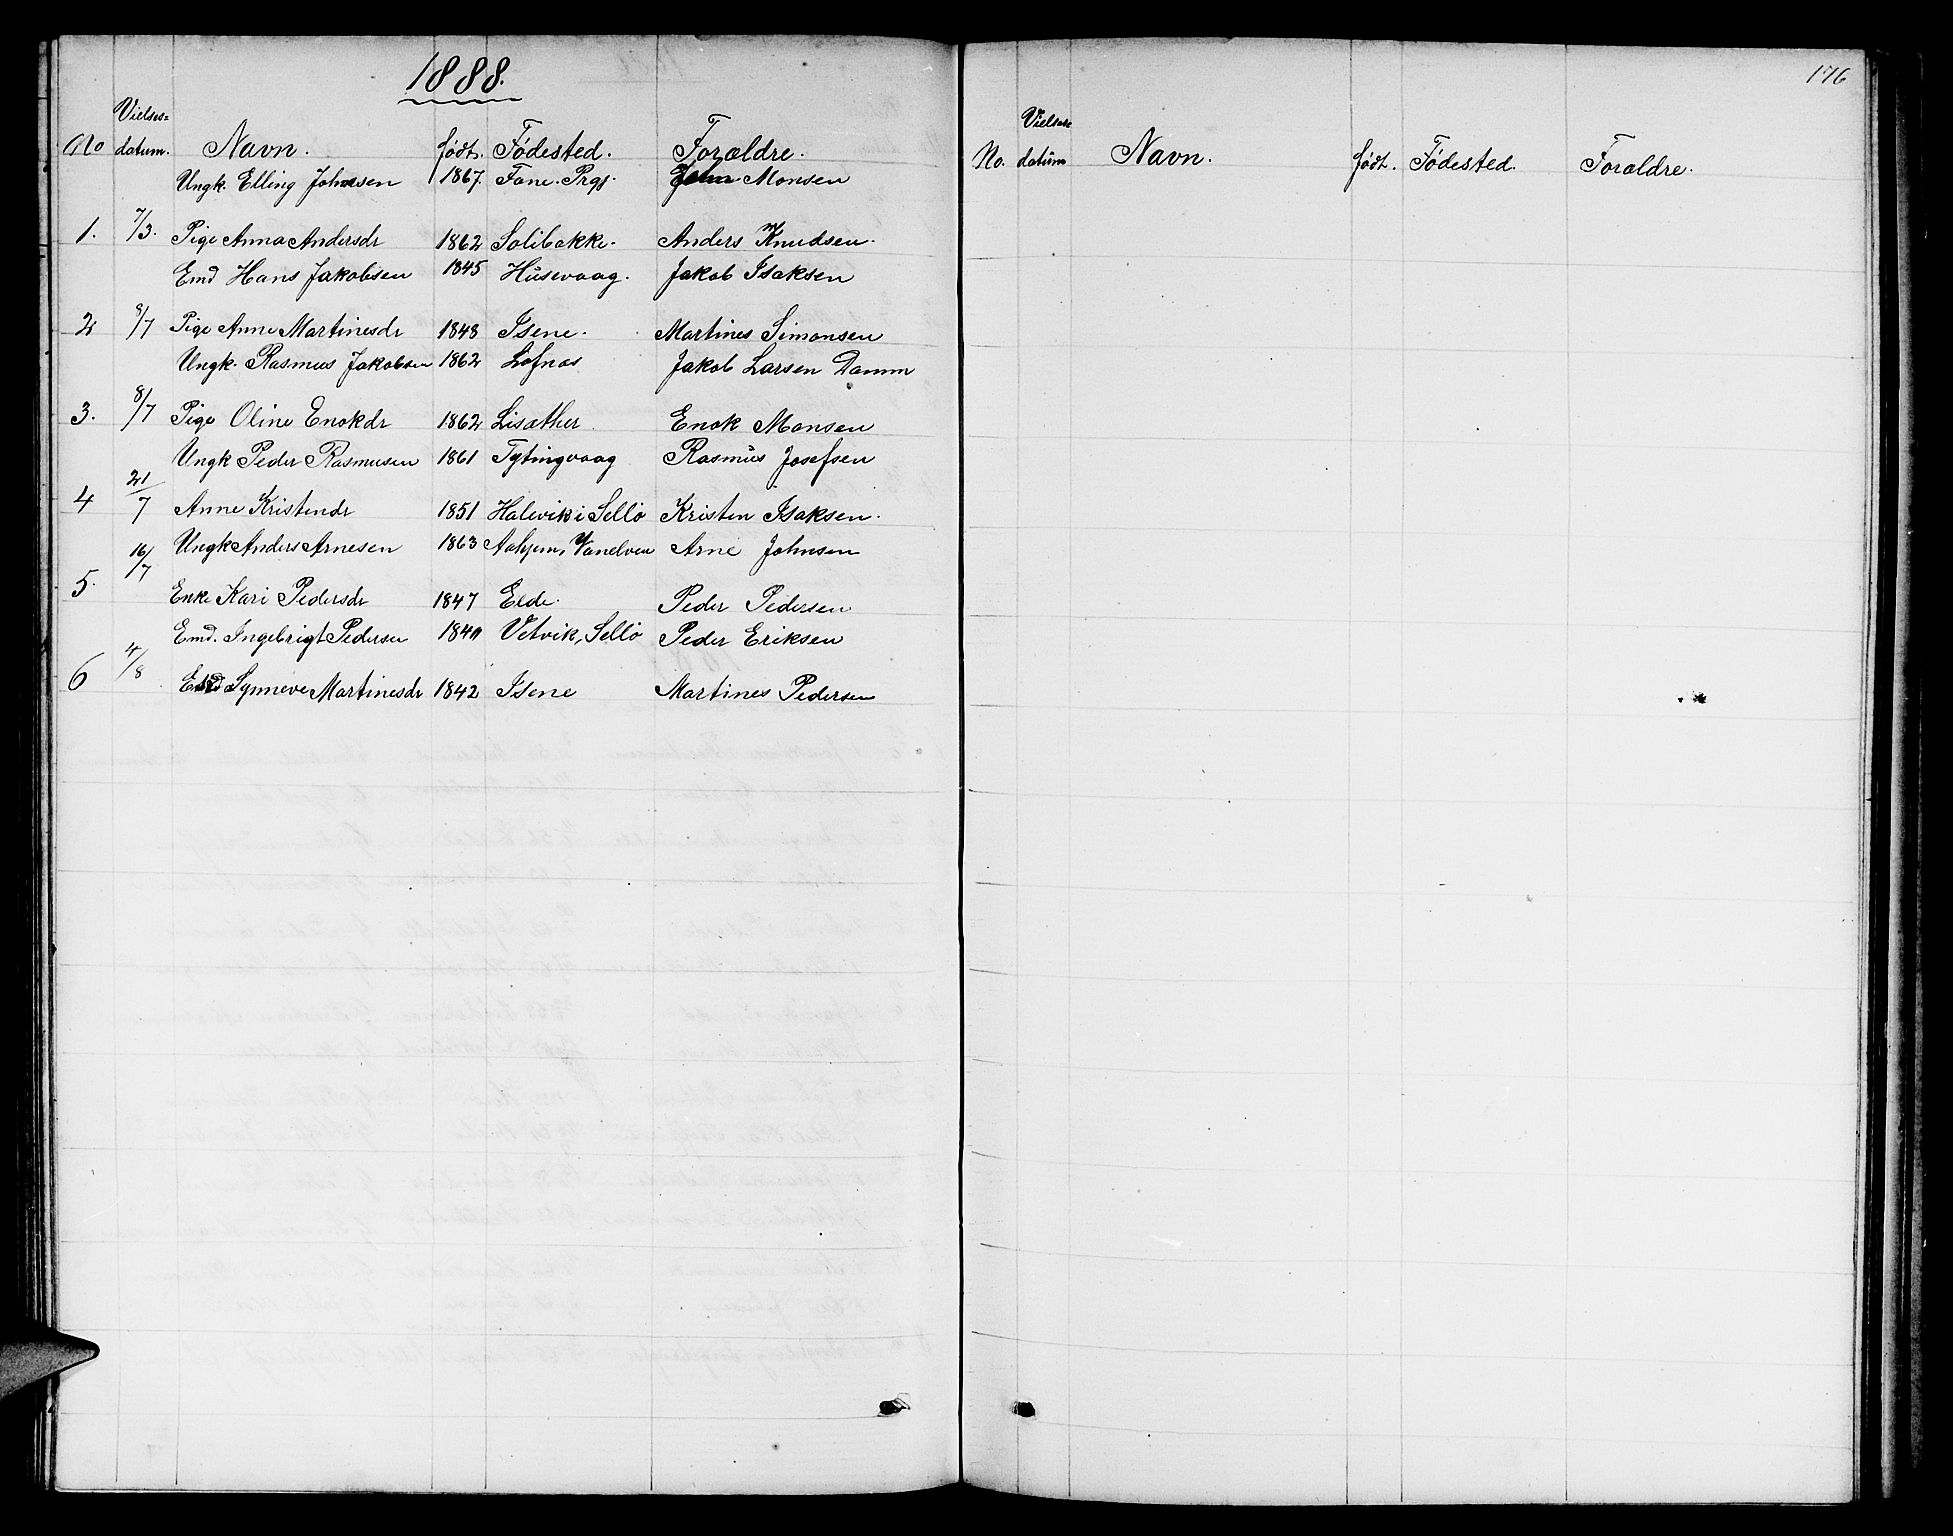 1888.
No Vielses= datum. Navn. født. Fødested. Forældre.
Ungk. Elling Johnsen 1867. Fane. Prgj. John Monsen
1. 7/3. Pige Anna Andersdr 1862 Solibakke. Anders Knudsen.
Emd Hans Jakobsen 1845 Husevaag. Jakob Isaksen
2 8/7 Pige Anne Martinesdr 1848 Isene. Martines Simonsen
Ungk. Rasmus Jakobsen 1862 Lofnæs Jakob Larsen Damm
3. 8/7 Pige Oline Enokdr 1862 Lisæther Enok Monsen
Ungk Peder Rasmusen 1861 Tytingvaag Rasmus Josefsen
4 21/7 Anne Kristendr 1851 Halevik i Sellø Kristen Isaksen.
Ungk Anders Arnesen 1863 Aahjem, Vanelven Arne Johnsen
5. 16/7 Enke Kari Pedersdr 1847 Elde. Peder Pedersen
Emd. Ingebrigt Pedersen Vetvik, Sellø Peder Eriksen
6 4/8 Synneve Martinesdr 1842 Isene Martines Pedersen
176
No. Vielses= datum Navn. født. Fødested. Forældre.